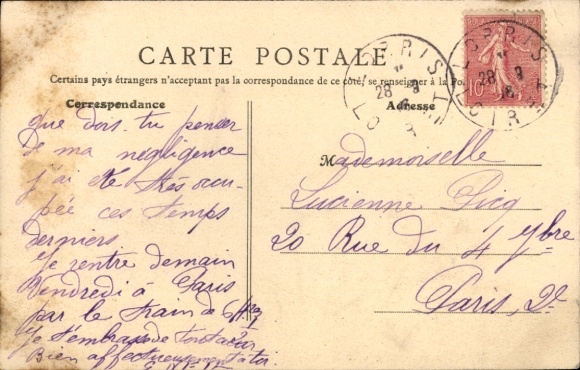 CARTE POSTALE
Certains pays étrangers n'acceptant pas la correspondance de ce côté, se renseigner à la Po
Correspondance
Adresse
que dois-tu penser
de ma négligence
j'ai été très occu-
pée ces temps
derniers
je rentre demain
Vendredi à Paris
par le train de 6h
je t'embrasse
Bien affectueusement à toi.
Mademoiselle
Lucienne Picq
20 Rue du 4 7bre
Paris, 2e
LORRIS
28 9
LOIRET
LORRIS
28 9
LOIRET
10